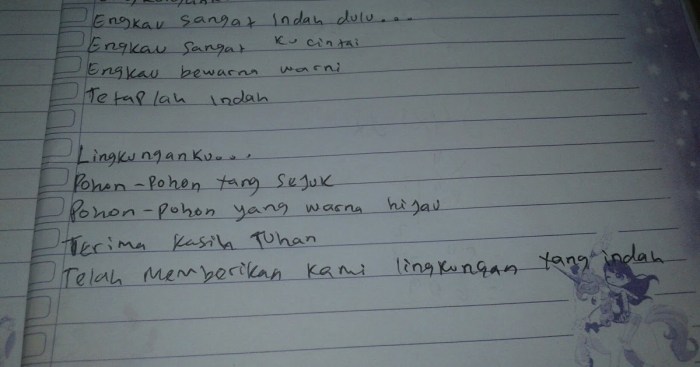 Engkau sangat Indah dulu...
Engkau sangat ku cintai
Engkau bewarna warni
Tetaplah indah
Lingkunganku...
Pohon-Pohon yang sejuk
Pohon-Pohon yang warna hijau
Terima kasih Tuhan
Telah memberikan kami lingkungan yang indah